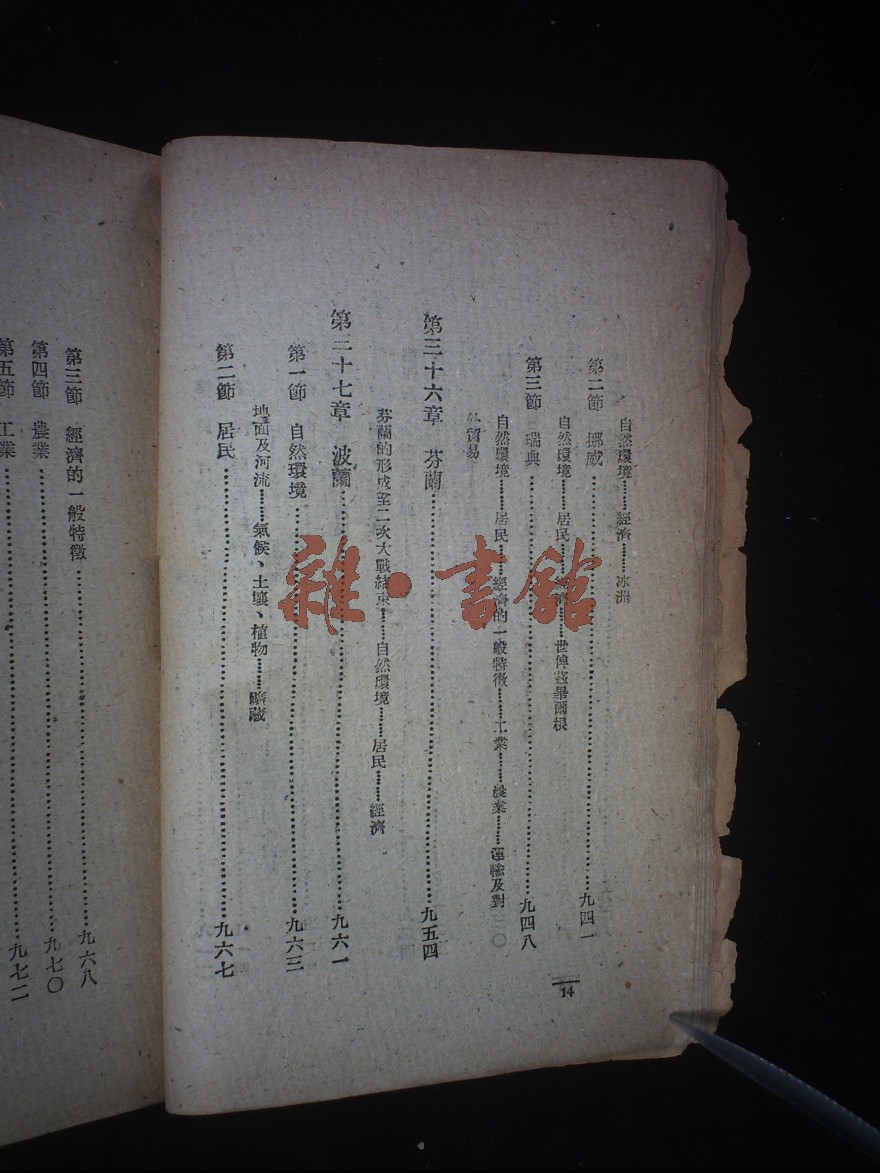 自然環境……經濟……冰洲
第二節　挪威……九四一
自然環境……居民……經濟……世傅茲畢爾根
第三節　瑞典……九四八
自然環境……居民……經濟的一般特徵……工業……農業……運輸及對
外貿易
第三十六章　芬蘭……九五四
芬蘭的形成至二次大戰結束……自然環境……居民……經濟
第三十七章　波蘭……九六一
第一節　自然環境……九六三
地面及河流……氣候、土壤、植物……礦藏
第二節　居民……九六七
14
第三節　經濟的一般特徵……九六八
第四節　農業……九七〇
第五節　工業……九七二
雜·書館